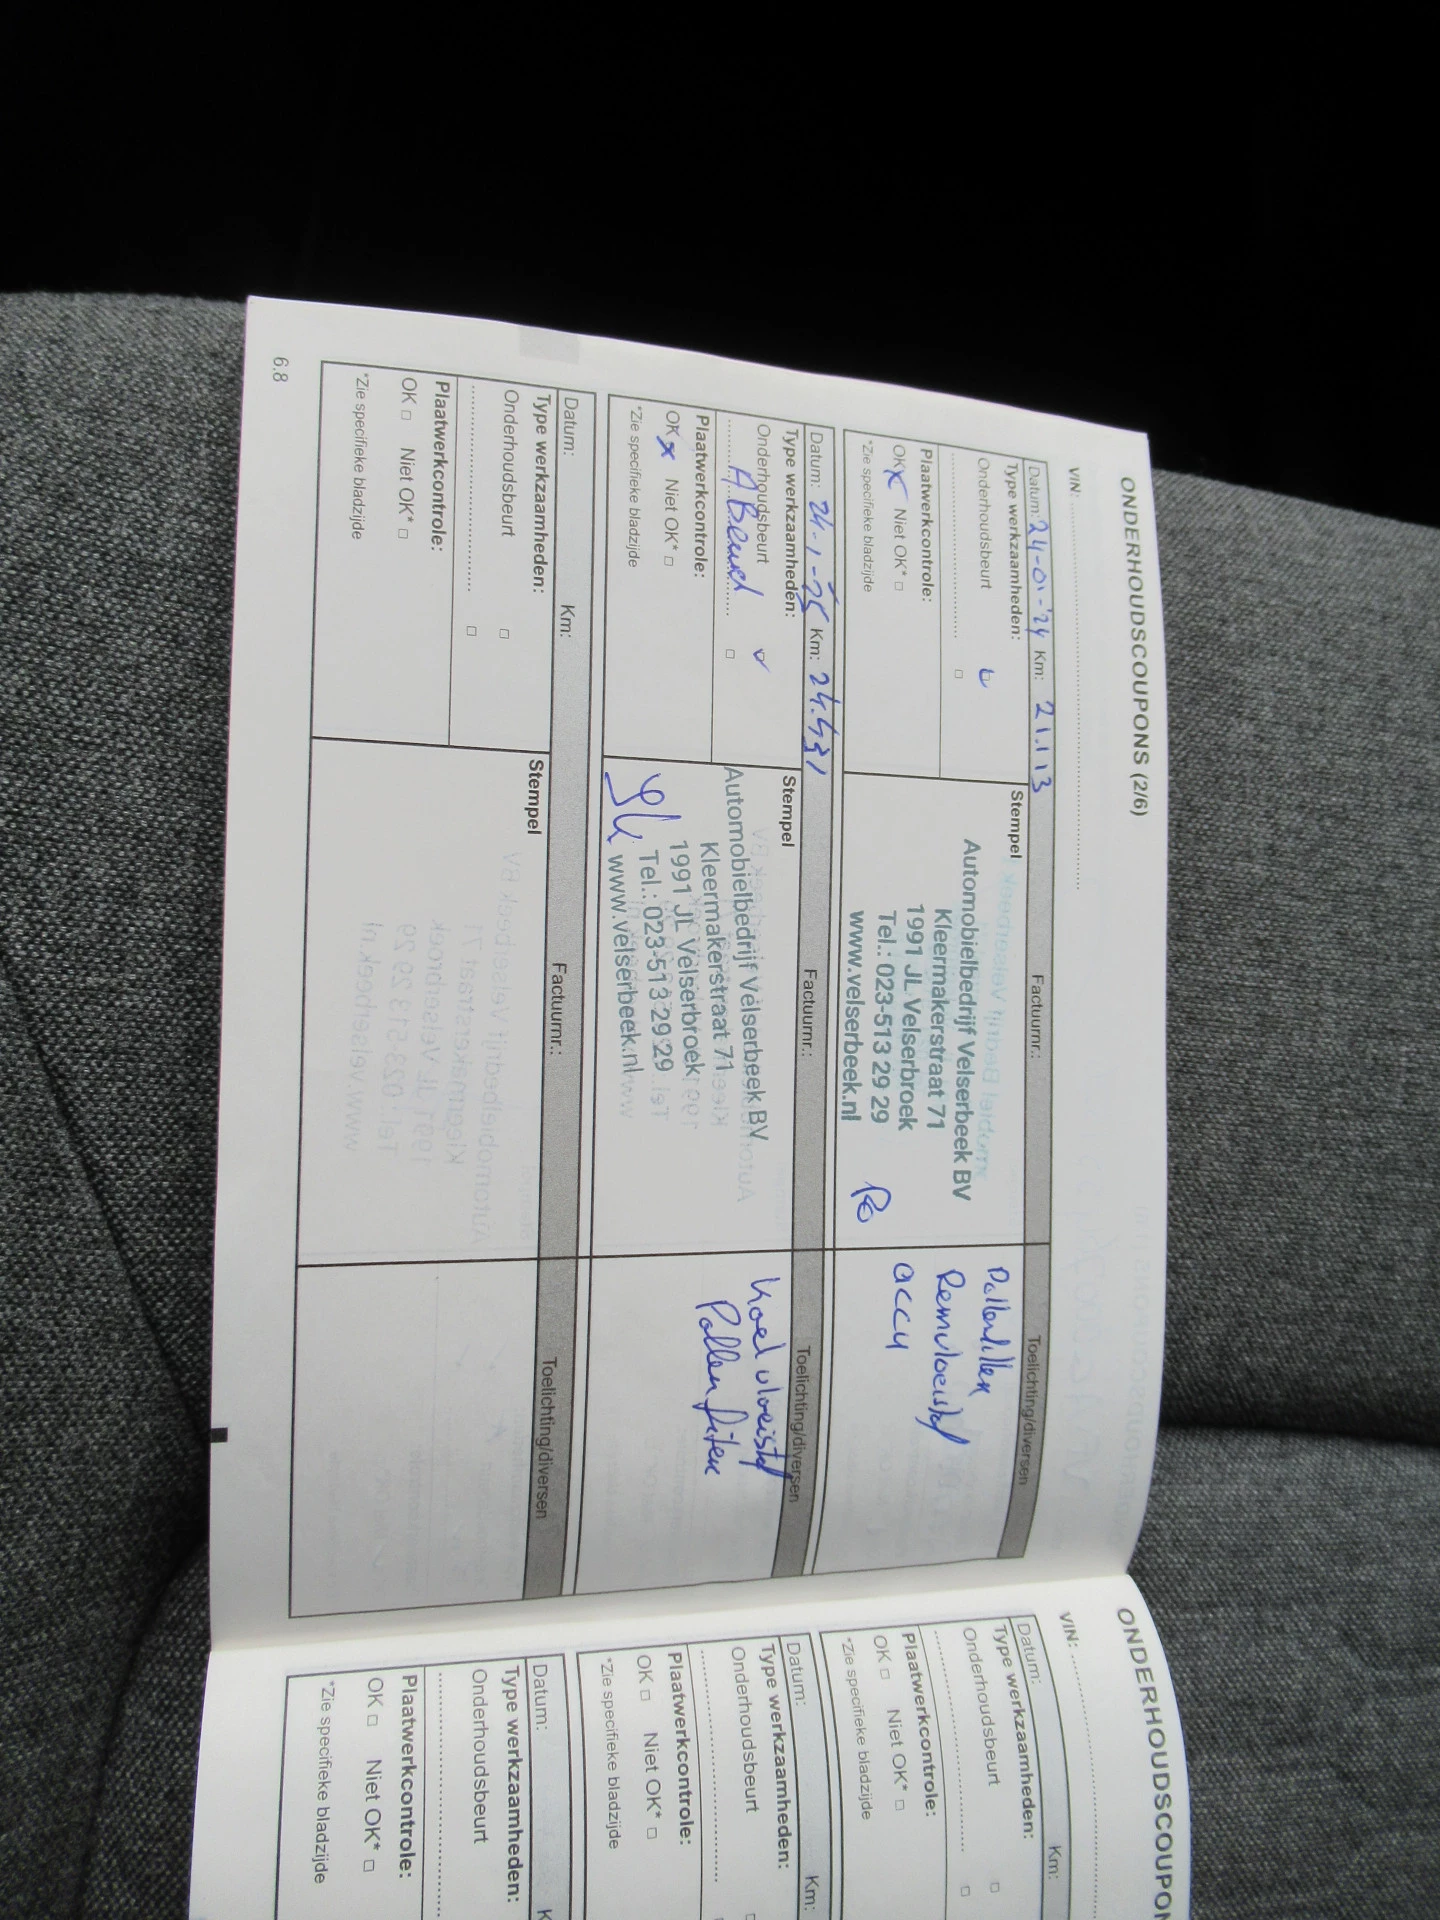 ONDERHOUDSCOUPONS (2/6)
VIN:
Datum: 24-01-'24 Km: 21.113 Factuurnr.: Toelichting/diversen
Type werkzaamheden:
Onderhoudsbeurt
Plaatwerkcontrole:
OK x Niet OK* □
*Zie specifieke bladzijde
Stempel
Automobielbedrijf Velserbeek BV
Kleermakerstraat 71
1991 JL Velserbroek
Tel.: 023-513 29 29
www.velserbeek.nl
Pollenfilter
Remvloeistof
accu
Datum: 24-1-'25 Km: 24.531 Factuurnr.: Toelichting/diversen
Type werkzaamheden:
Onderhoudsbeurt
A Beurt
Plaatwerkcontrole:
OK x Niet OK* □
*Zie specifieke bladzijde
Stempel
Automobielbedrijf Velserbeek BV
Kleermakerstraat 71
1991 JL Velserbroek
Tel.: 023-513 29 29
www.velserbeek.nl
Koelvloeistof
Pollenfilter
Datum: Km: Factuurnr.: Toelichting/diversen
Type werkzaamheden:
Onderhoudsbeurt □
□
Plaatwerkcontrole:
OK □ Niet OK* □
*Zie specifieke bladzijde
Stempel
6.8
ONDERHOUDSCOUPON
VIN:
Datum: Km:
Type werkzaamheden:
Onderhoudsbeurt □
□
Plaatwerkcontrole:
OK □ Niet OK* □
*Zie specifieke bladzijde
Datum: Km:
Type werkzaamheden:
Onderhoudsbeurt
Plaatwerkcontrole:
OK □ Niet OK* □
*Zie specifieke bladzijde
Datum: K
Type werkzaamheden:
Onderhoudsbeurt
Plaatwerkcontrole:
OK □ Niet OK* □
*Zie specifieke bladzijde